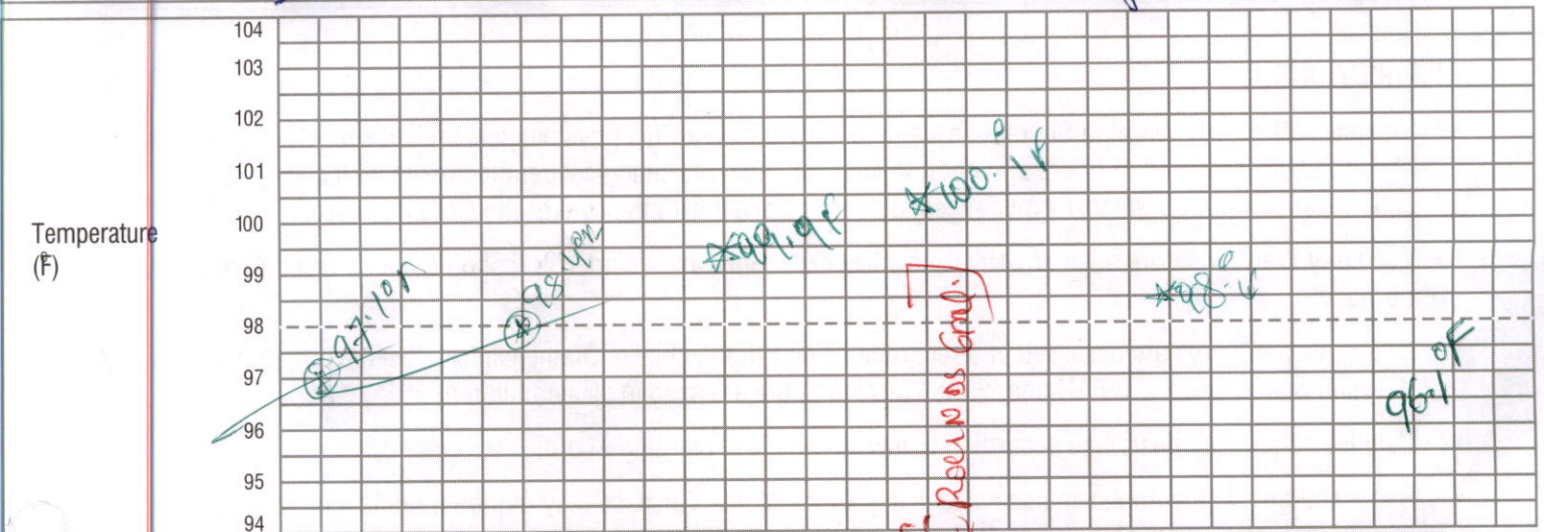 104
103
102
101
100
99
98
97
96
95
94
Temperature
(°F)
97.1°F
98.4°F
99.9F
100.1°F
98.
96.1°F